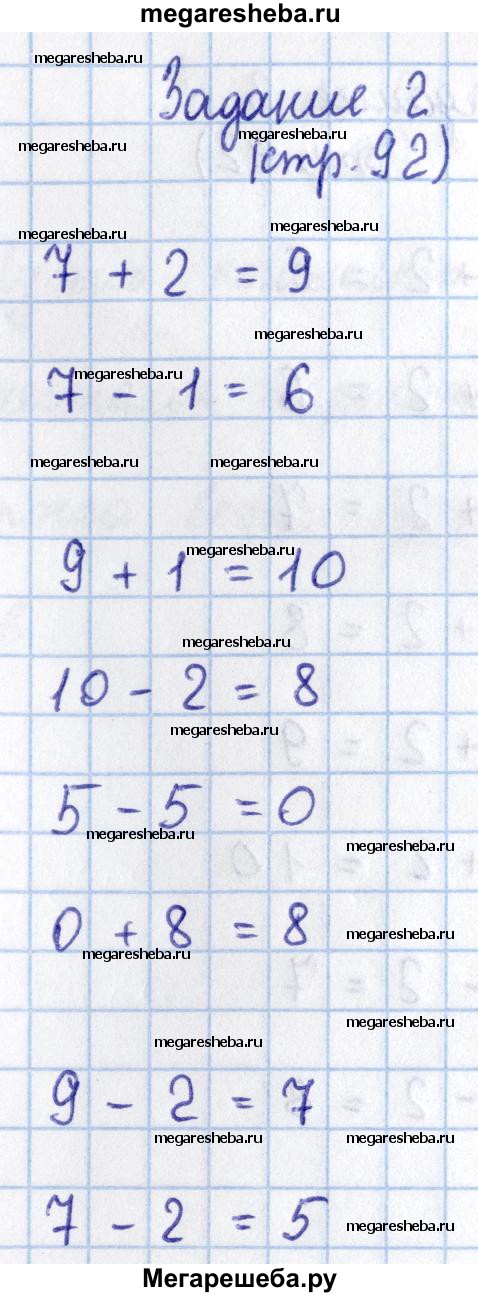 megaresheba.ru
megaresheba.ru
Задание 2
megaresheba.ru megaresheba.ru
(стр. 92)
megaresheba.ru megaresheba.ru
7 + 2 = 9
megaresheba.ru
megaresheba.ru
7 - 1 = 6
megaresheba.ru megaresheba.ru
megaresheba.ru
9 + 1 = 10
megaresheba.ru
10 - 2 = 8
megaresheba.ru
5 - 5 = 0
megaresheba.ru megaresheba.ru
0 + 8 = 8
megaresheba.ru megaresheba.ru
megaresheba.ru
megaresheba.ru
9 - 2 = 7
megaresheba.ru megaresheba.ru
7 - 2 = 5
megaresheba.ru
Мегарешеба.ру